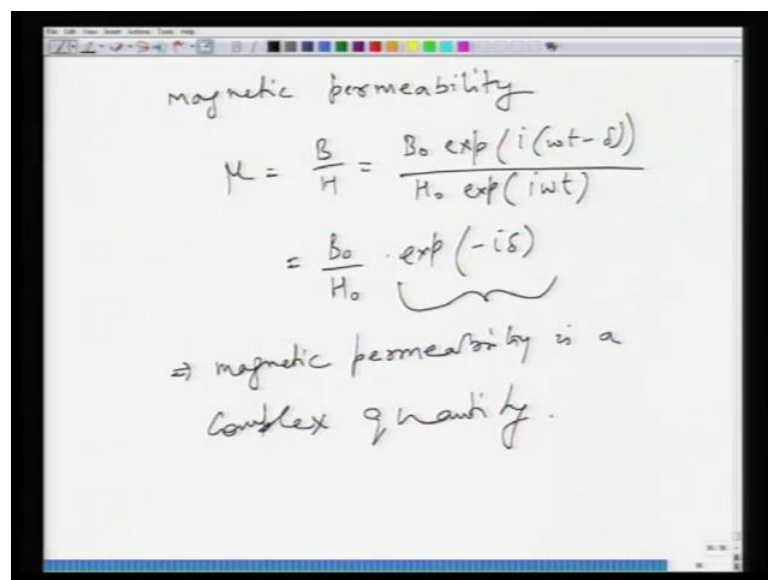 File Edit View Insert Actions Tools Help
B I
magnetic permeability
μ = B/H = B₀ exp(i(ωt-δ)) / H₀ exp(iωt)
= B₀/H₀ · exp(-iδ)
⇒ magnetic permeability is a
complex quantity.